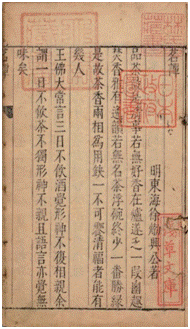 茗譚
明東海徐𤊹興公著
品茶最是清事若無好香在爐遂乏一段幽趣
焚香雅有逸韻若無名茶浮碗終少一番勝緣
是故茶香兩相為用缺一不可饗清福者能有
幾人
王佛大常言三日不飲酒覺形神不復相親余
謂一日不飲茶不獨形神不親且語言亦覺無
味矣